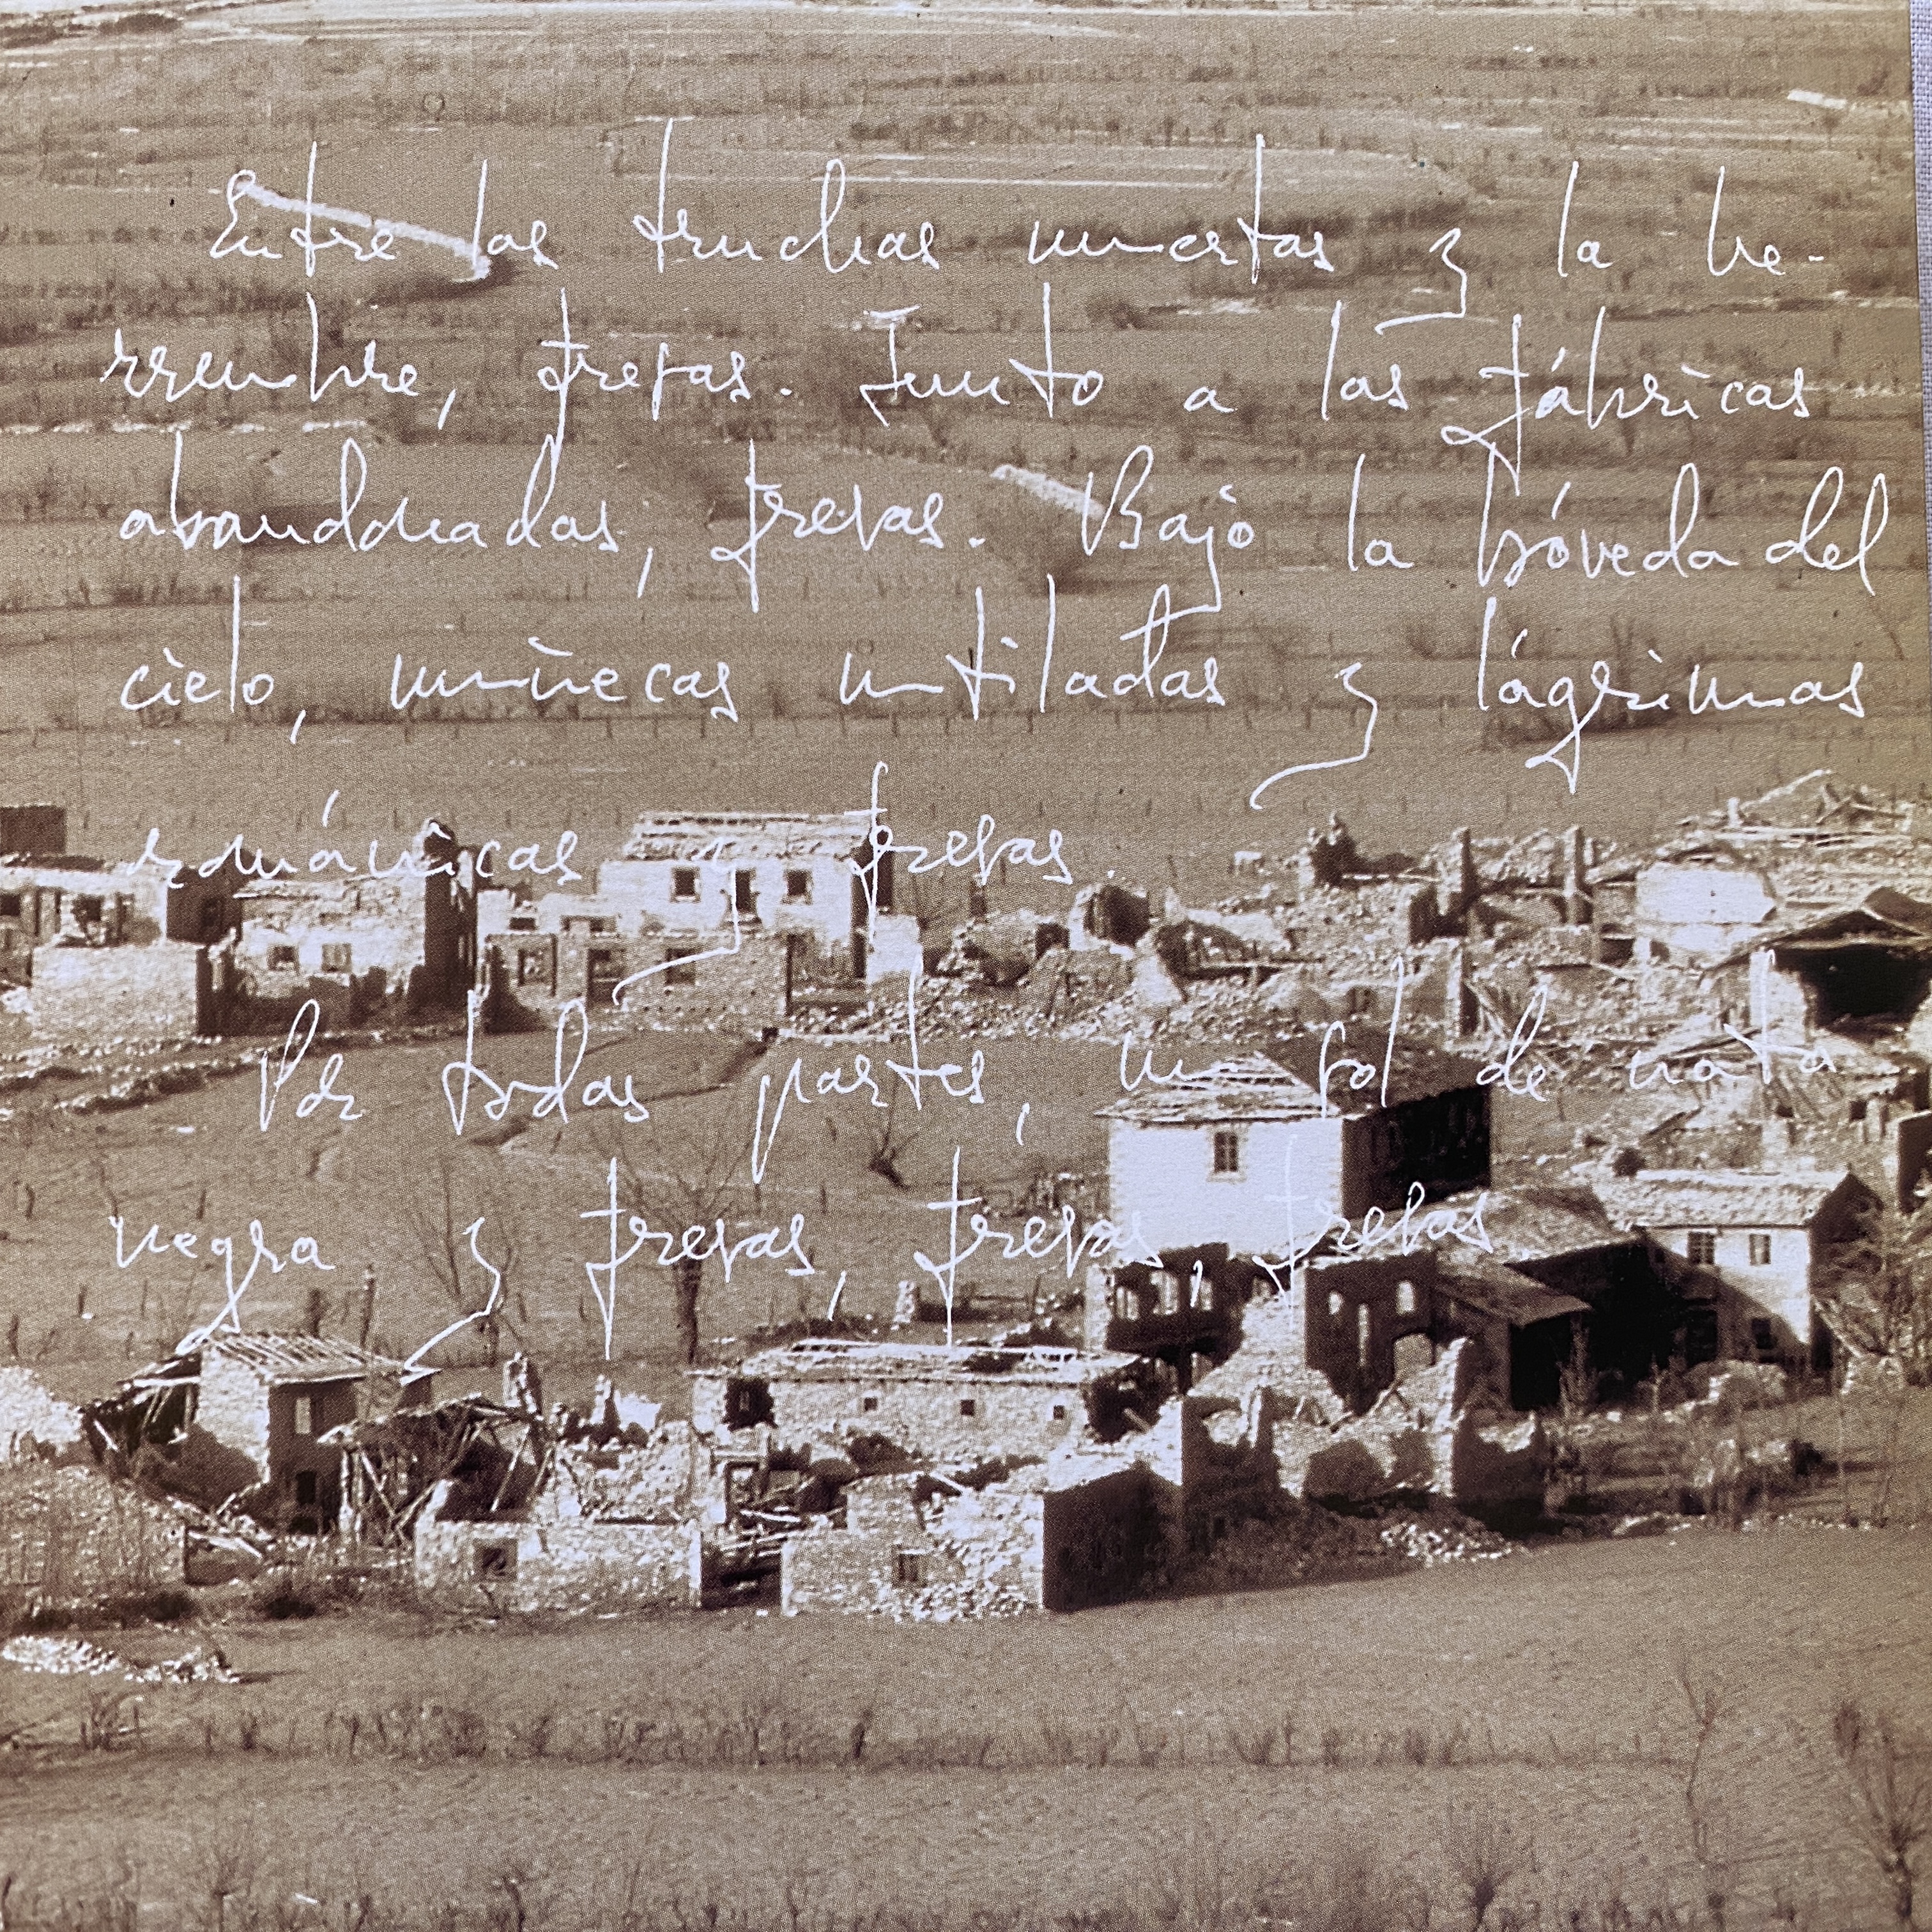 Entre las truchas muertas y la he-
rrumbre, fresas. Junto a las fábricas
abandonadas, fresas. Bajo la bóveda del
cielo, muñecas mutiladas y lágrimas
románicas y fresas.
Por todas partes, un sol de nata
negra y fresas, fresas, fresas.